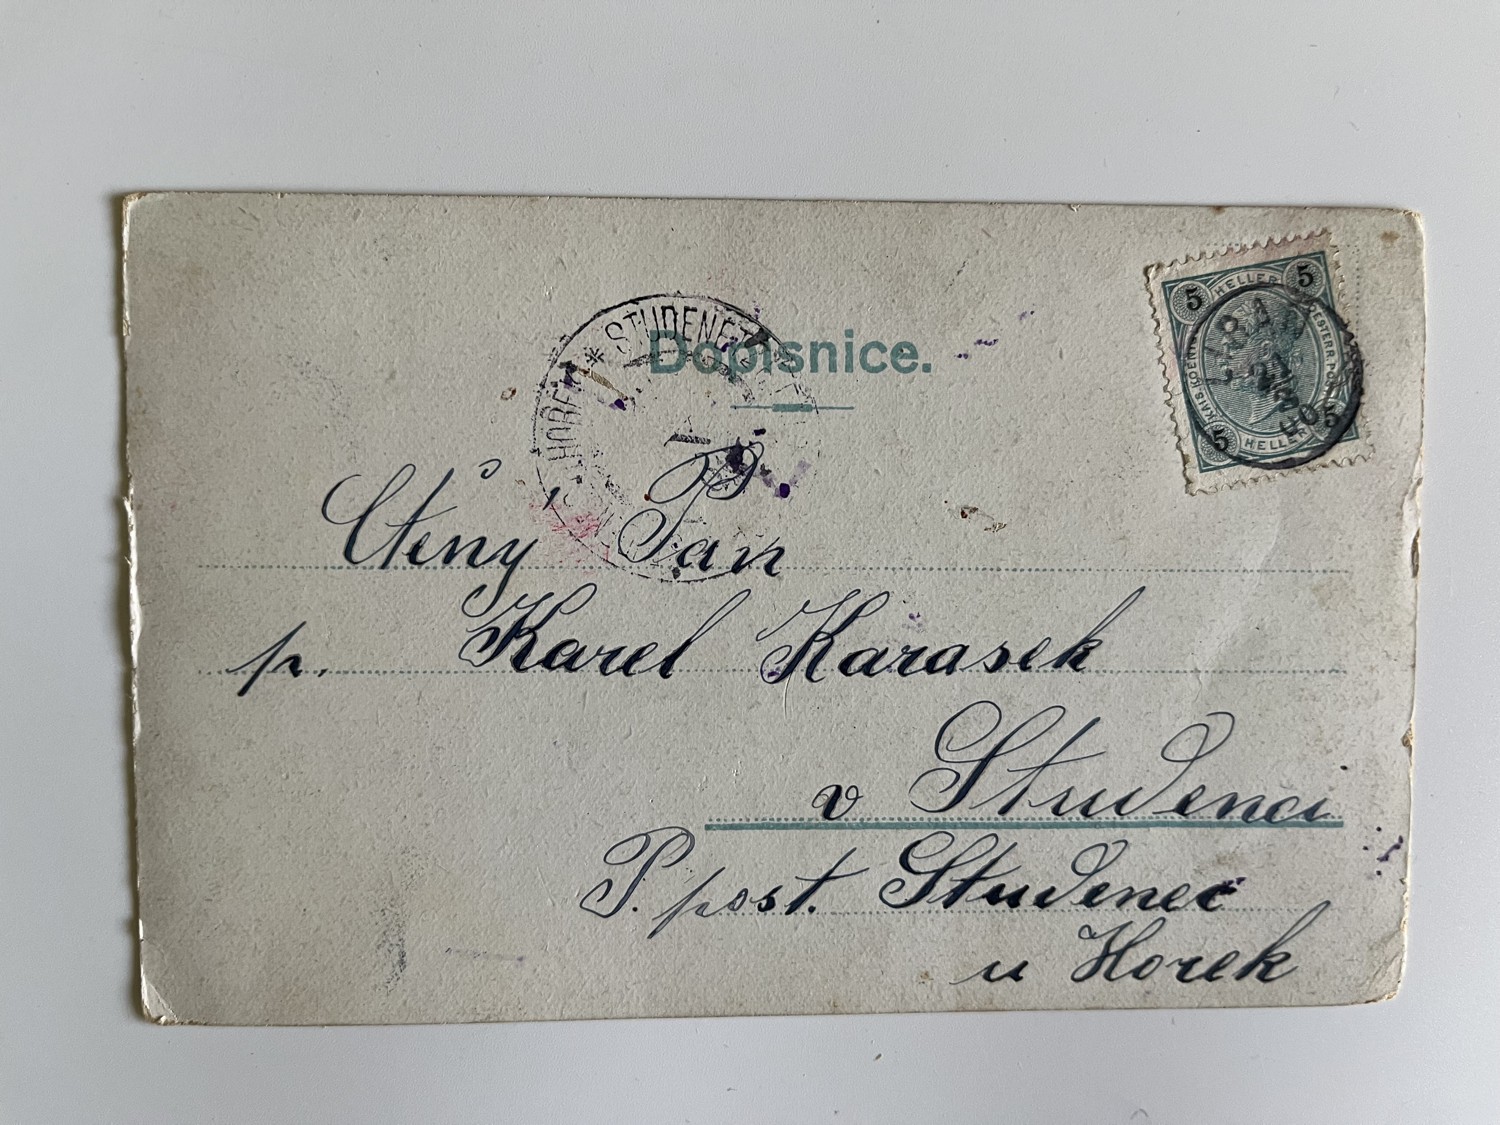 Dopisnice.
* STUDENETZ
HOREK
5 HELLER 5
KAIS. KOENIGL. OESTERR. POST
5 HELLER 5
00
Ctěný Pán
p. Karel Karasek
v Studenci
P. post. Studenec
u Horek